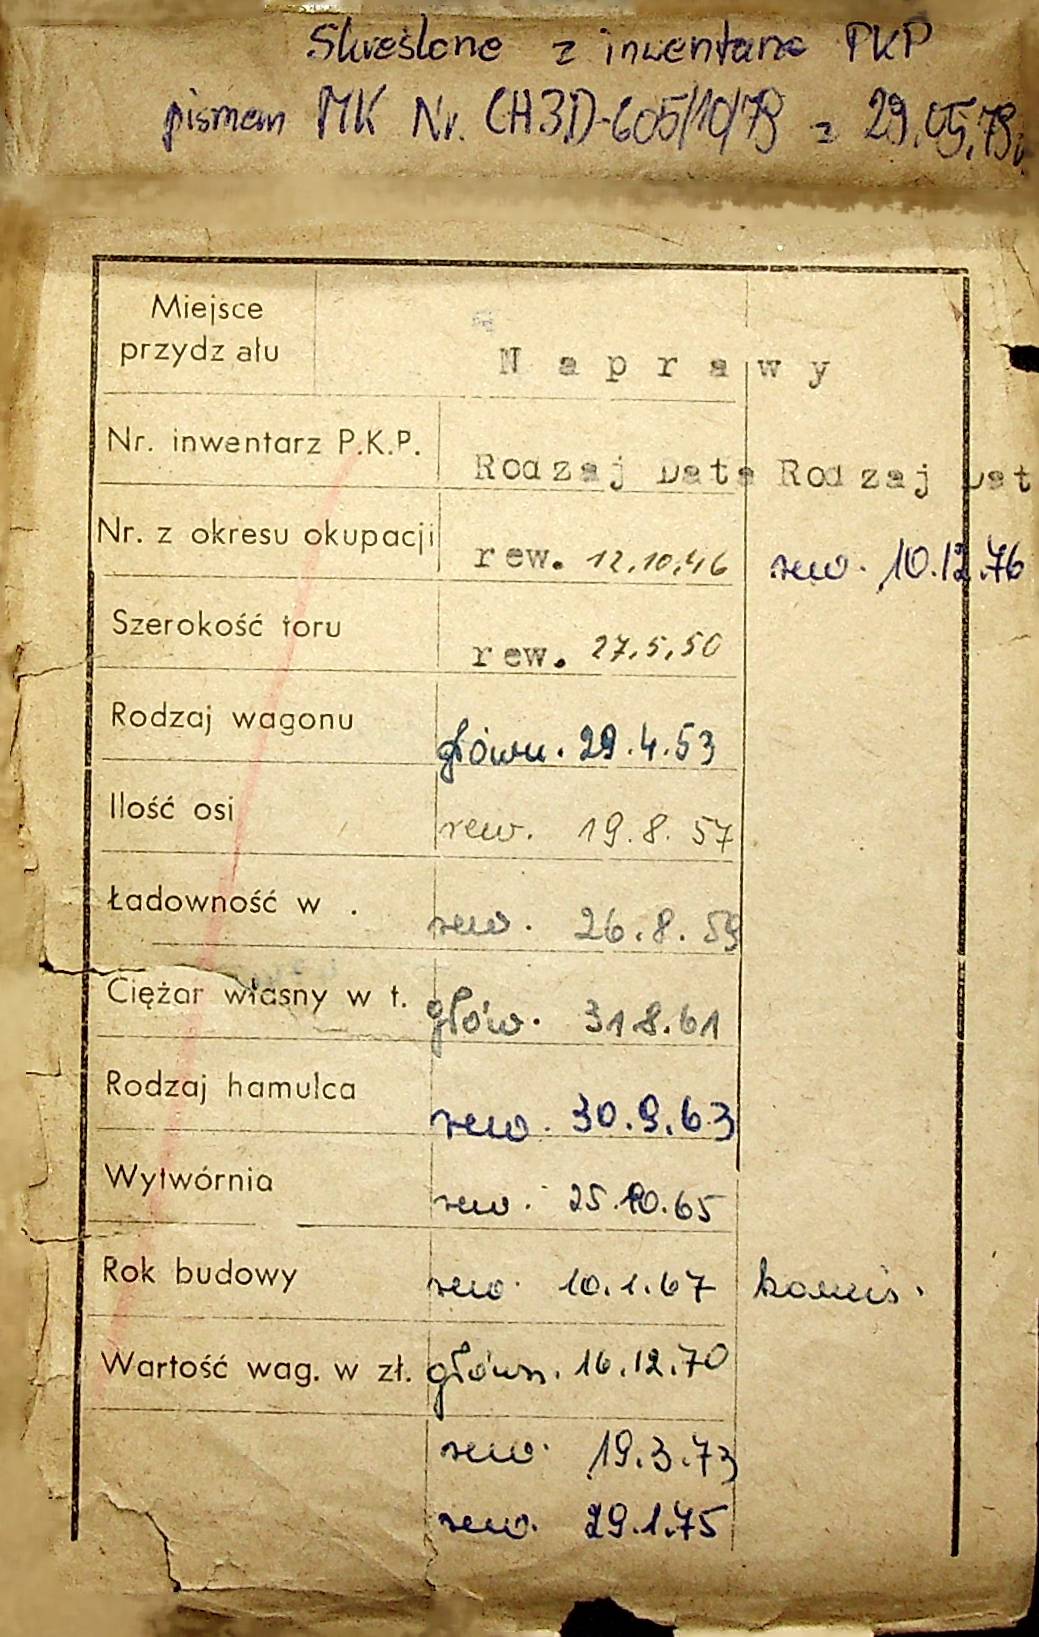 Skreślone z inwentarza PKP
pismem MK Nr. CH3D-605/10/79 z 29.05.79.
Miejsce
przydz ału
Naprawy
Nr. inwentarz P.K.P.
Rodzaj Data Rodzaj Dat
Nr. z okresu okupacji
rew. 12.10.46 rew. 10.12.76
Szerokość toru
rew. 27.5.50
Rodzaj wagonu
główn. 29.4.53
Ilość osi
rew. 19.8.57
Ładowność w .
rew. 26.8.59
Ciężar własny w t.
głów. 31.8.61
Rodzaj hamulca
rew. 30.9.63
Wytwórnia
rew. 25.10.65
Rok budowy
rew. 10.1.67 komis.
Wartość wag. w zł.
główn. 16.12.70
rew. 19.3.73
rew. 29.1.75